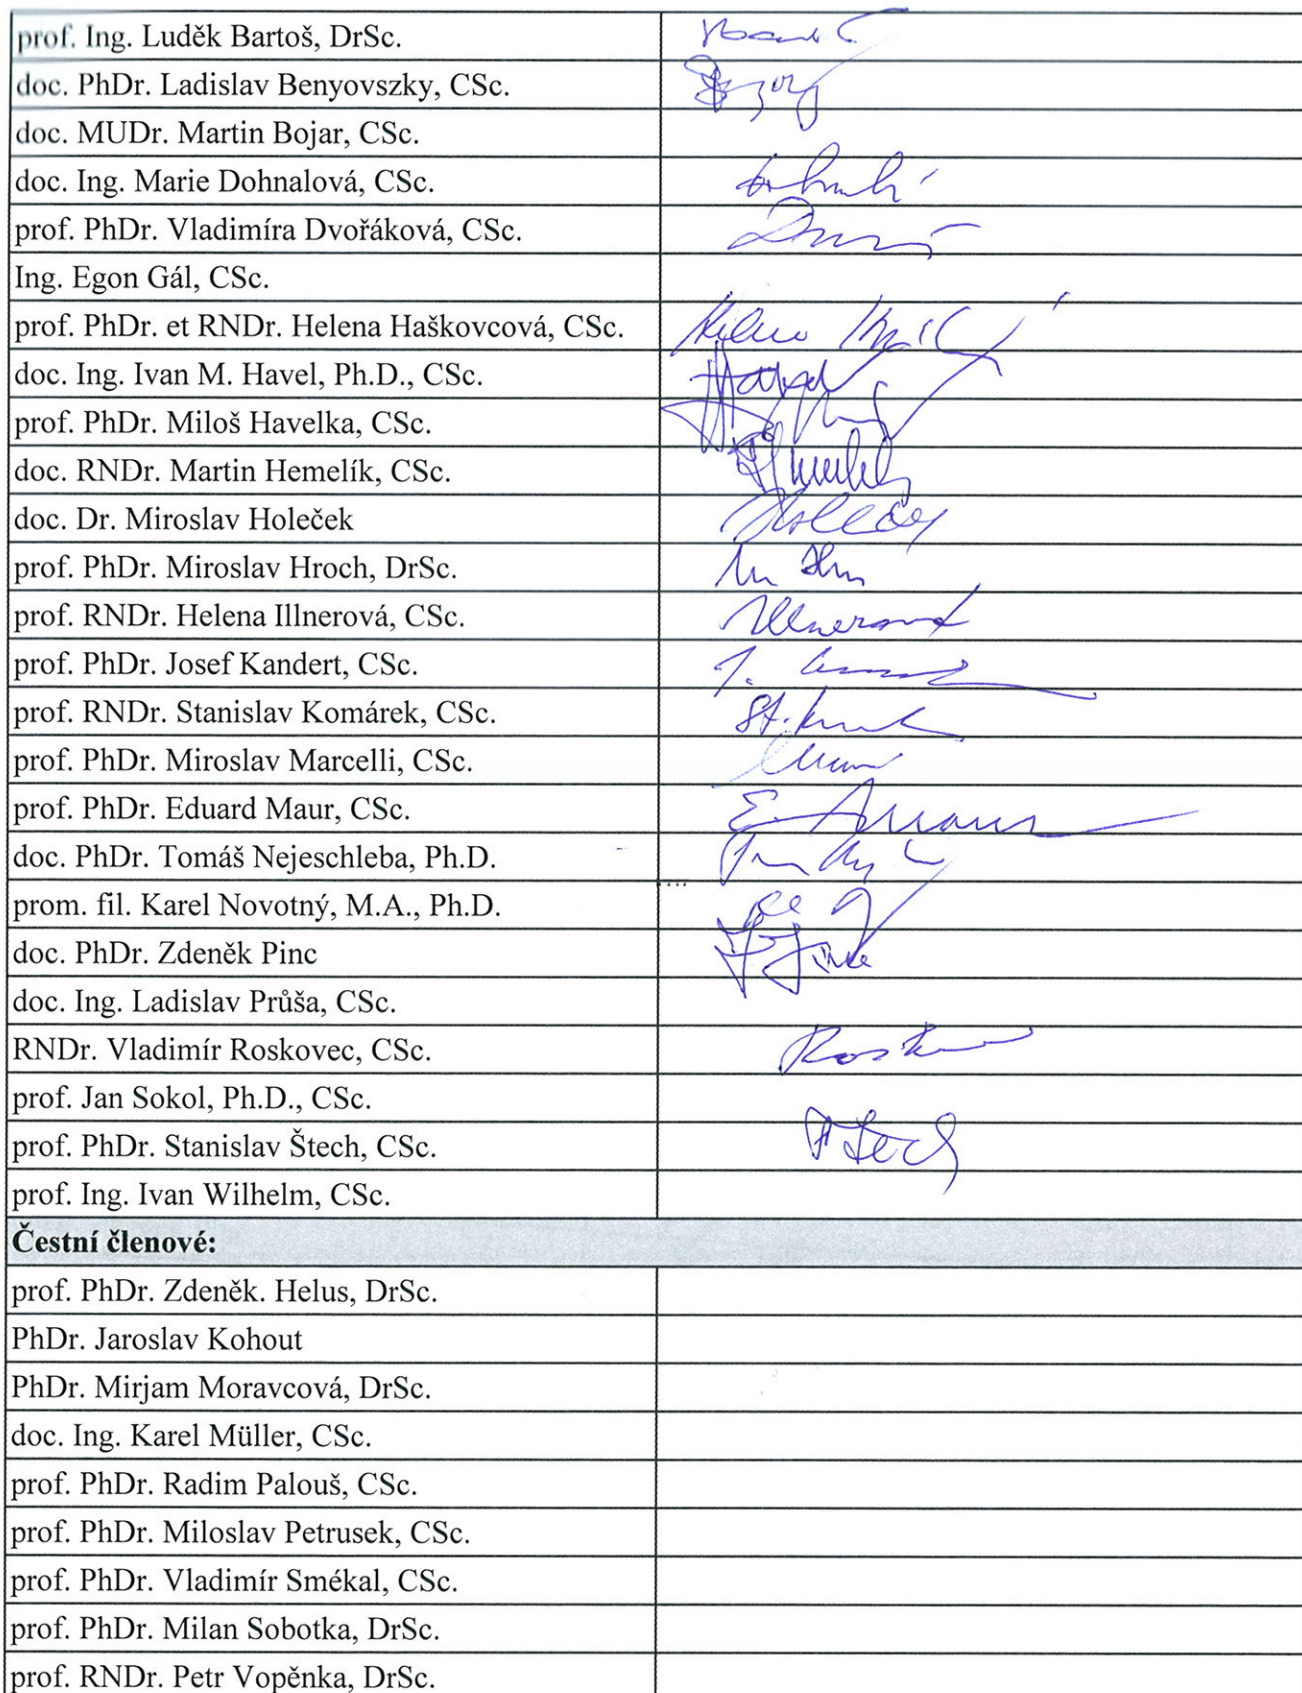 prof. Ing. Luděk Bartoš, DrSc.
doc. PhDr. Ladislav Benyovszky, CSc.
doc. MUDr. Martin Bojar, CSc.
doc. Ing. Marie Dohnalová, CSc.
prof. PhDr. Vladimíra Dvořáková, CSc.
Ing. Egon Gál, CSc.
prof. PhDr. et RNDr. Helena Haškovcová, CSc.
doc. Ing. Ivan M. Havel, Ph.D., CSc. Havel
prof. PhDr. Miloš Havelka, CSc.
doc. RNDr. Martin Hemelík, CSc.
doc. Dr. Miroslav Holeček Holeček
prof. PhDr. Miroslav Hroch, DrSc.
prof. RNDr. Helena Illnerová, CSc. Illnerová
prof. PhDr. Josef Kandert, CSc.
prof. RNDr. Stanislav Komárek, CSc.
prof. PhDr. Miroslav Marcelli, CSc.
prof. PhDr. Eduard Maur, CSc. E. Maur
doc. PhDr. Tomáš Nejeschleba, Ph.D.
prom. fil. Karel Novotný, M.A., Ph.D.
doc. PhDr. Zdeněk Pinc
doc. Ing. Ladislav Průša, CSc.
RNDr. Vladimír Roskovec, CSc.
prof. Jan Sokol, Ph.D., CSc.
prof. PhDr. Stanislav Štech, CSc. Štech
prof. Ing. Ivan Wilhelm, CSc.
Čestní členové:
prof. PhDr. Zdeněk. Helus, DrSc.
PhDr. Jaroslav Kohout
PhDr. Mirjam Moravcová, DrSc.
doc. Ing. Karel Müller, CSc.
prof. PhDr. Radim Palouš, CSc.
prof. PhDr. Miloslav Petrusek, CSc.
prof. PhDr. Vladimír Smékal, CSc.
prof. PhDr. Milan Sobotka, DrSc.
prof. RNDr. Petr Vopěnka, DrSc.